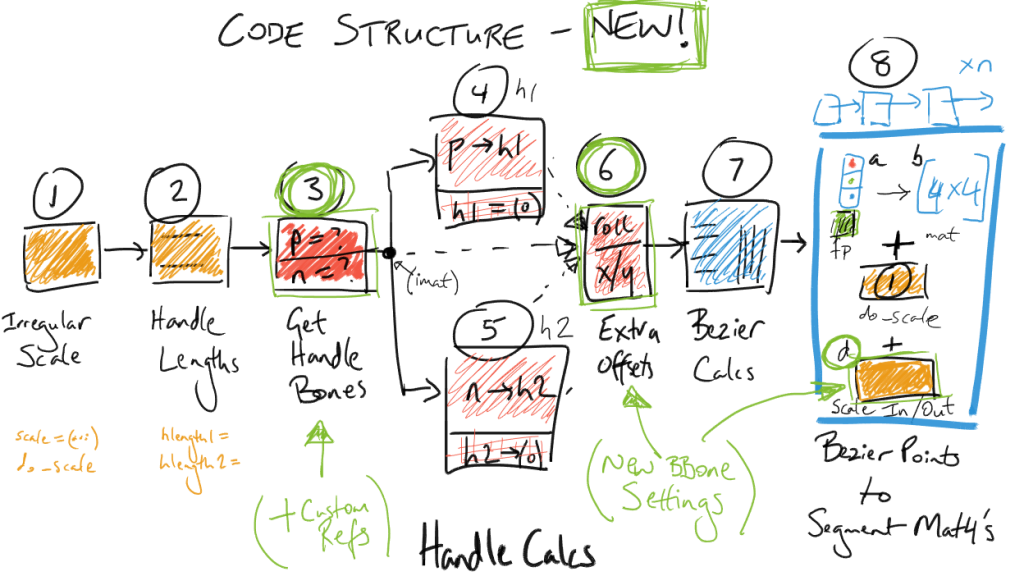 CODE STRUCTURE - NEW!
1
Irregular
Scale
scale = (...)
do_scale
2
Handle
Lengths
hlength1 =
hlength2 =
3
p = ?
n = ?
Get
Handle
Bones
(+ Custom
Refs)
(imat)
4 h1
p → h1
h1 = (0)
5 h2
n → h2
h2 → (0)
Handle Calcs
6
roll
x/y
Extra
Offsets
(New BBone
Settings)
7
Bezier
Calcs
8
xn
a b
→ [4x4]
fp mat
+
1
do_scale
+
d
Scale In/Out
Bezier Points
to
Segment Mat4's